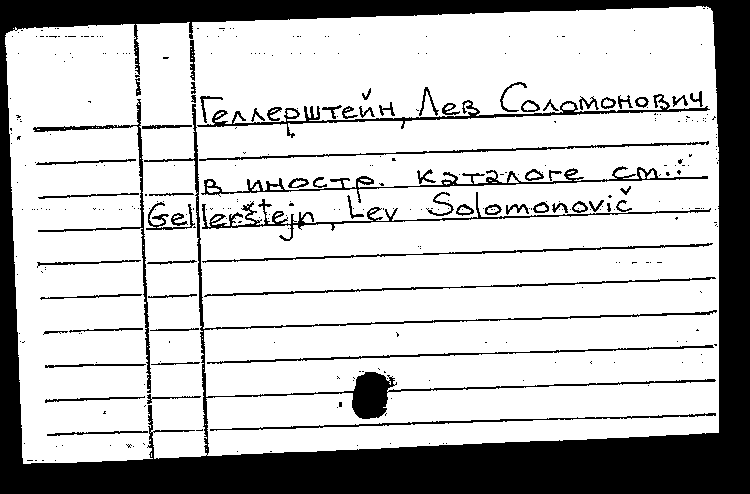 Геллерштейн, Лев Соломонович
в иностр. каталоге см.:
Gellerštejn, Lev Solomonovič